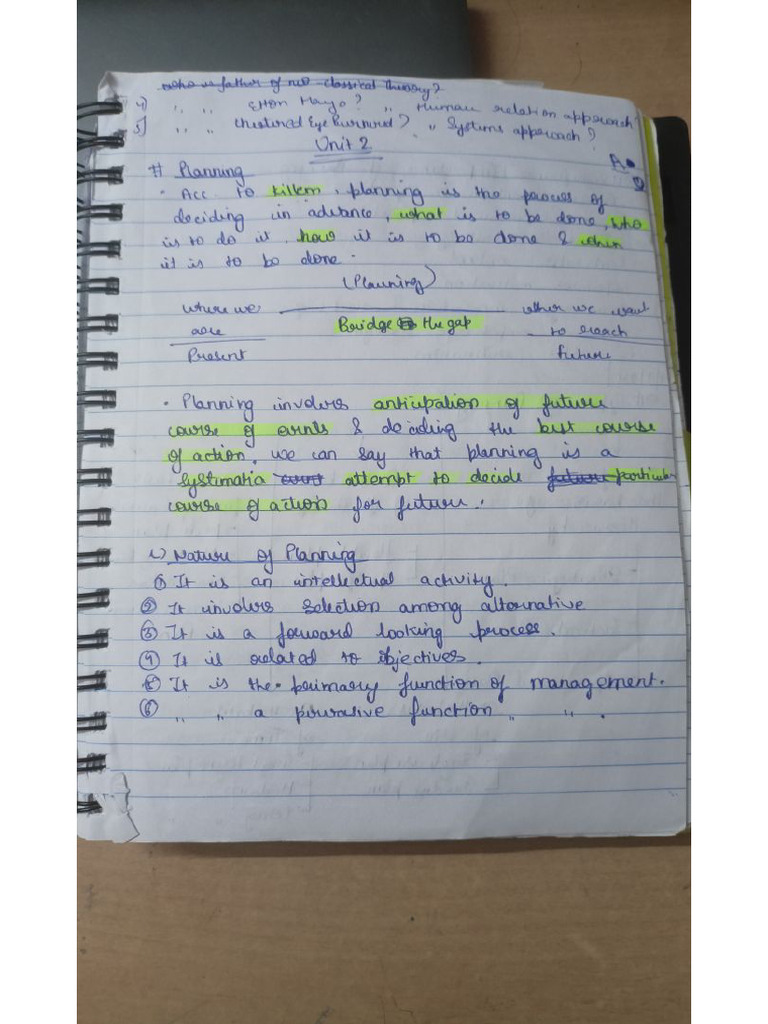 who is father of neo classical theory?
4) " " Elton Mayo? " Human relation approach
5) " " Chestered Eye Burnrd? " Systems approach?
Unit 2
# Planning
· Acc to killem, planning is the process of
deciding in advance, what is to be done, who
is to do it, how it is to be done & when
it is to be done.
(Planning)
where we where we want
are Bridge the gap to reach
Present Future
· Planning involves anticipation of future
course of events & deciding the best course
of action. we can say that planning is a
systematic attempt to decide future particular
course of action for future.
Nature of Planning
① It is an intellectual activity.
② It involves selection among alternative
③ It is a forward looking process.
④ It is related to objectives.
⑤ It is the primary function of management.
⑥ " " a pervasive function " " .